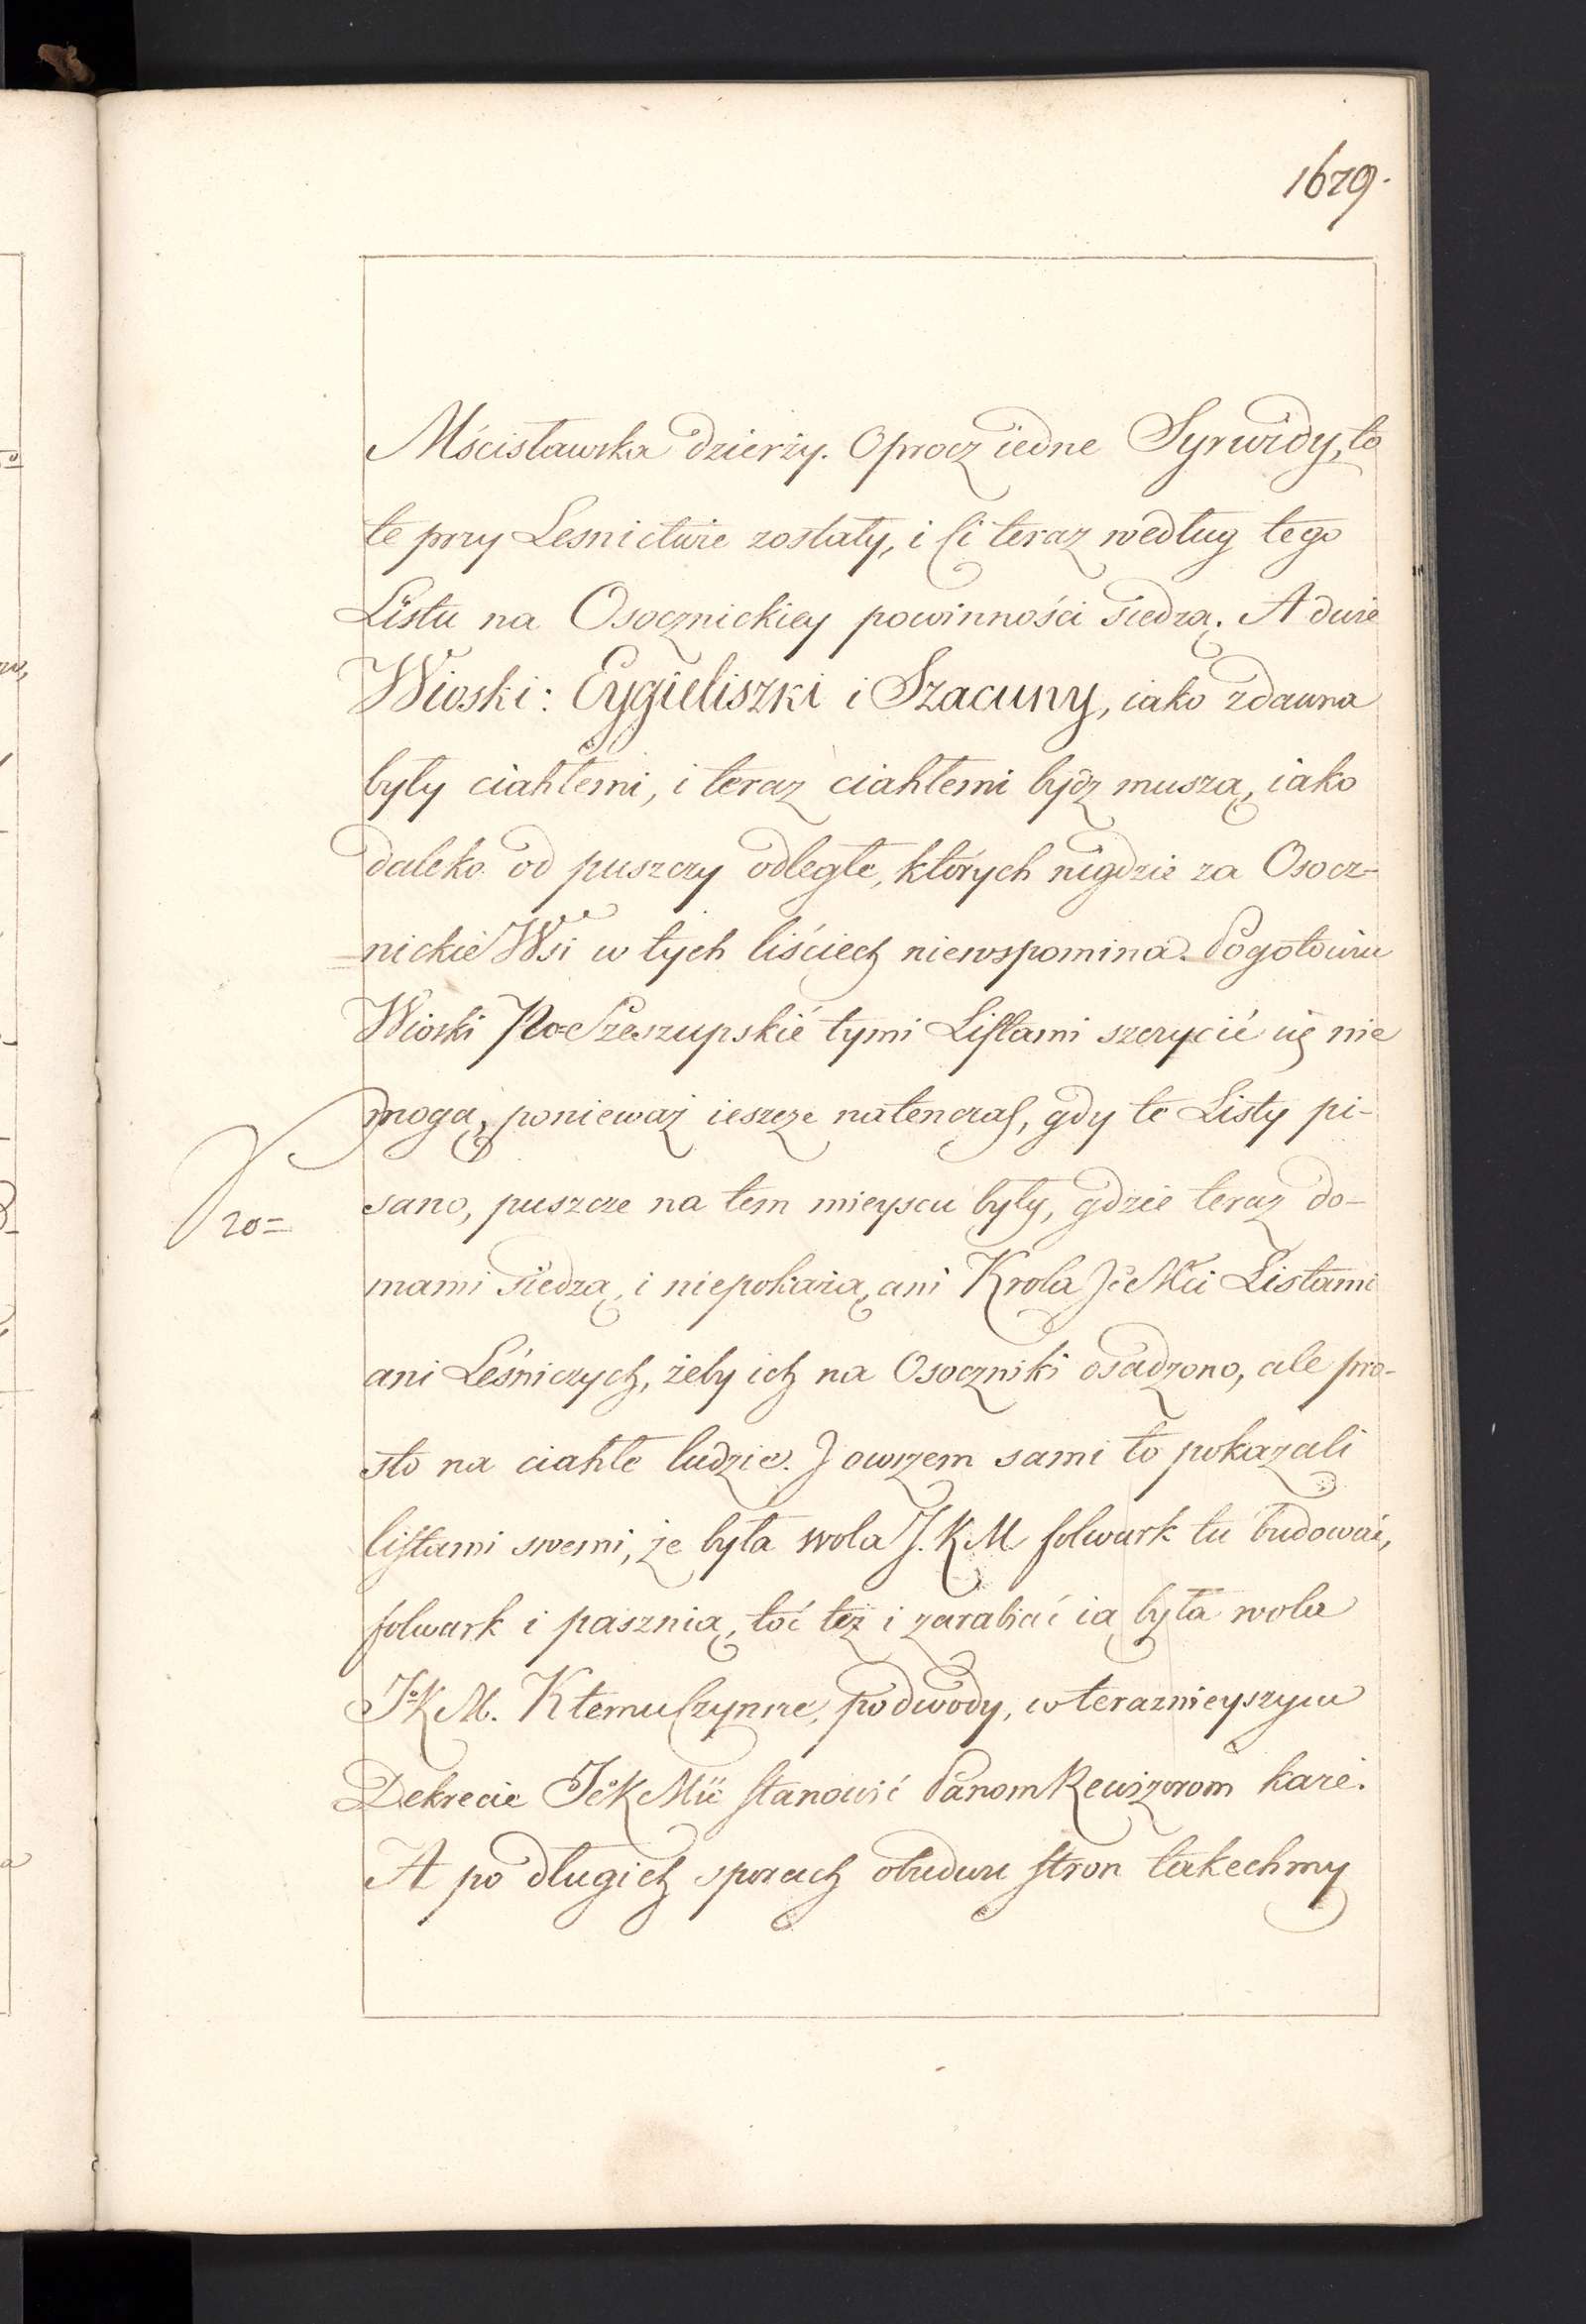 1679.
Mścisławska dzierży. Oprocz iedne Syrwidy, to
te przy Lesnictwie zostały, i Ci teraz według tego
Listu na Osocznickiey powinności siedzą. A dwie
Wioski: Eygieliszki i Szacuny, iako zdawna
były ciahłemi, i teraz ciahłemi bydz muszą, iako
daleko od puszczy odległe, których nigdzie za Osocz-
nickie Wsi w tych liściech niewspomina. Pogotowiu
Wioski Po-Szeszupskié tymi Listami szczycić się nie
mogą, ponieważ ieszcze natenczas, gdy te Listy pi-
sano, puszcze na tem mieyscu były, gdzie teraz do-
20=
mami siedzą, i niepokażą, ani Krola Jē Mĉi Listami
ani Leśniczych, żeby ich na Osoczniki osadzono, ale pro-
sto na ciahłe ludzie. J owszem sami to pokazali
listami swemi, że była wola J. K M. folwark tu budować,
folwark i pasznią, toć też i zarabiać ią była wola
JKM. K temu Czynsze, podwody, w teraznieyszym
Dekrecie Jē K Mĉi stanowić Panom Rewizorom każe.
A po długich sporach obudwu stron takechmy